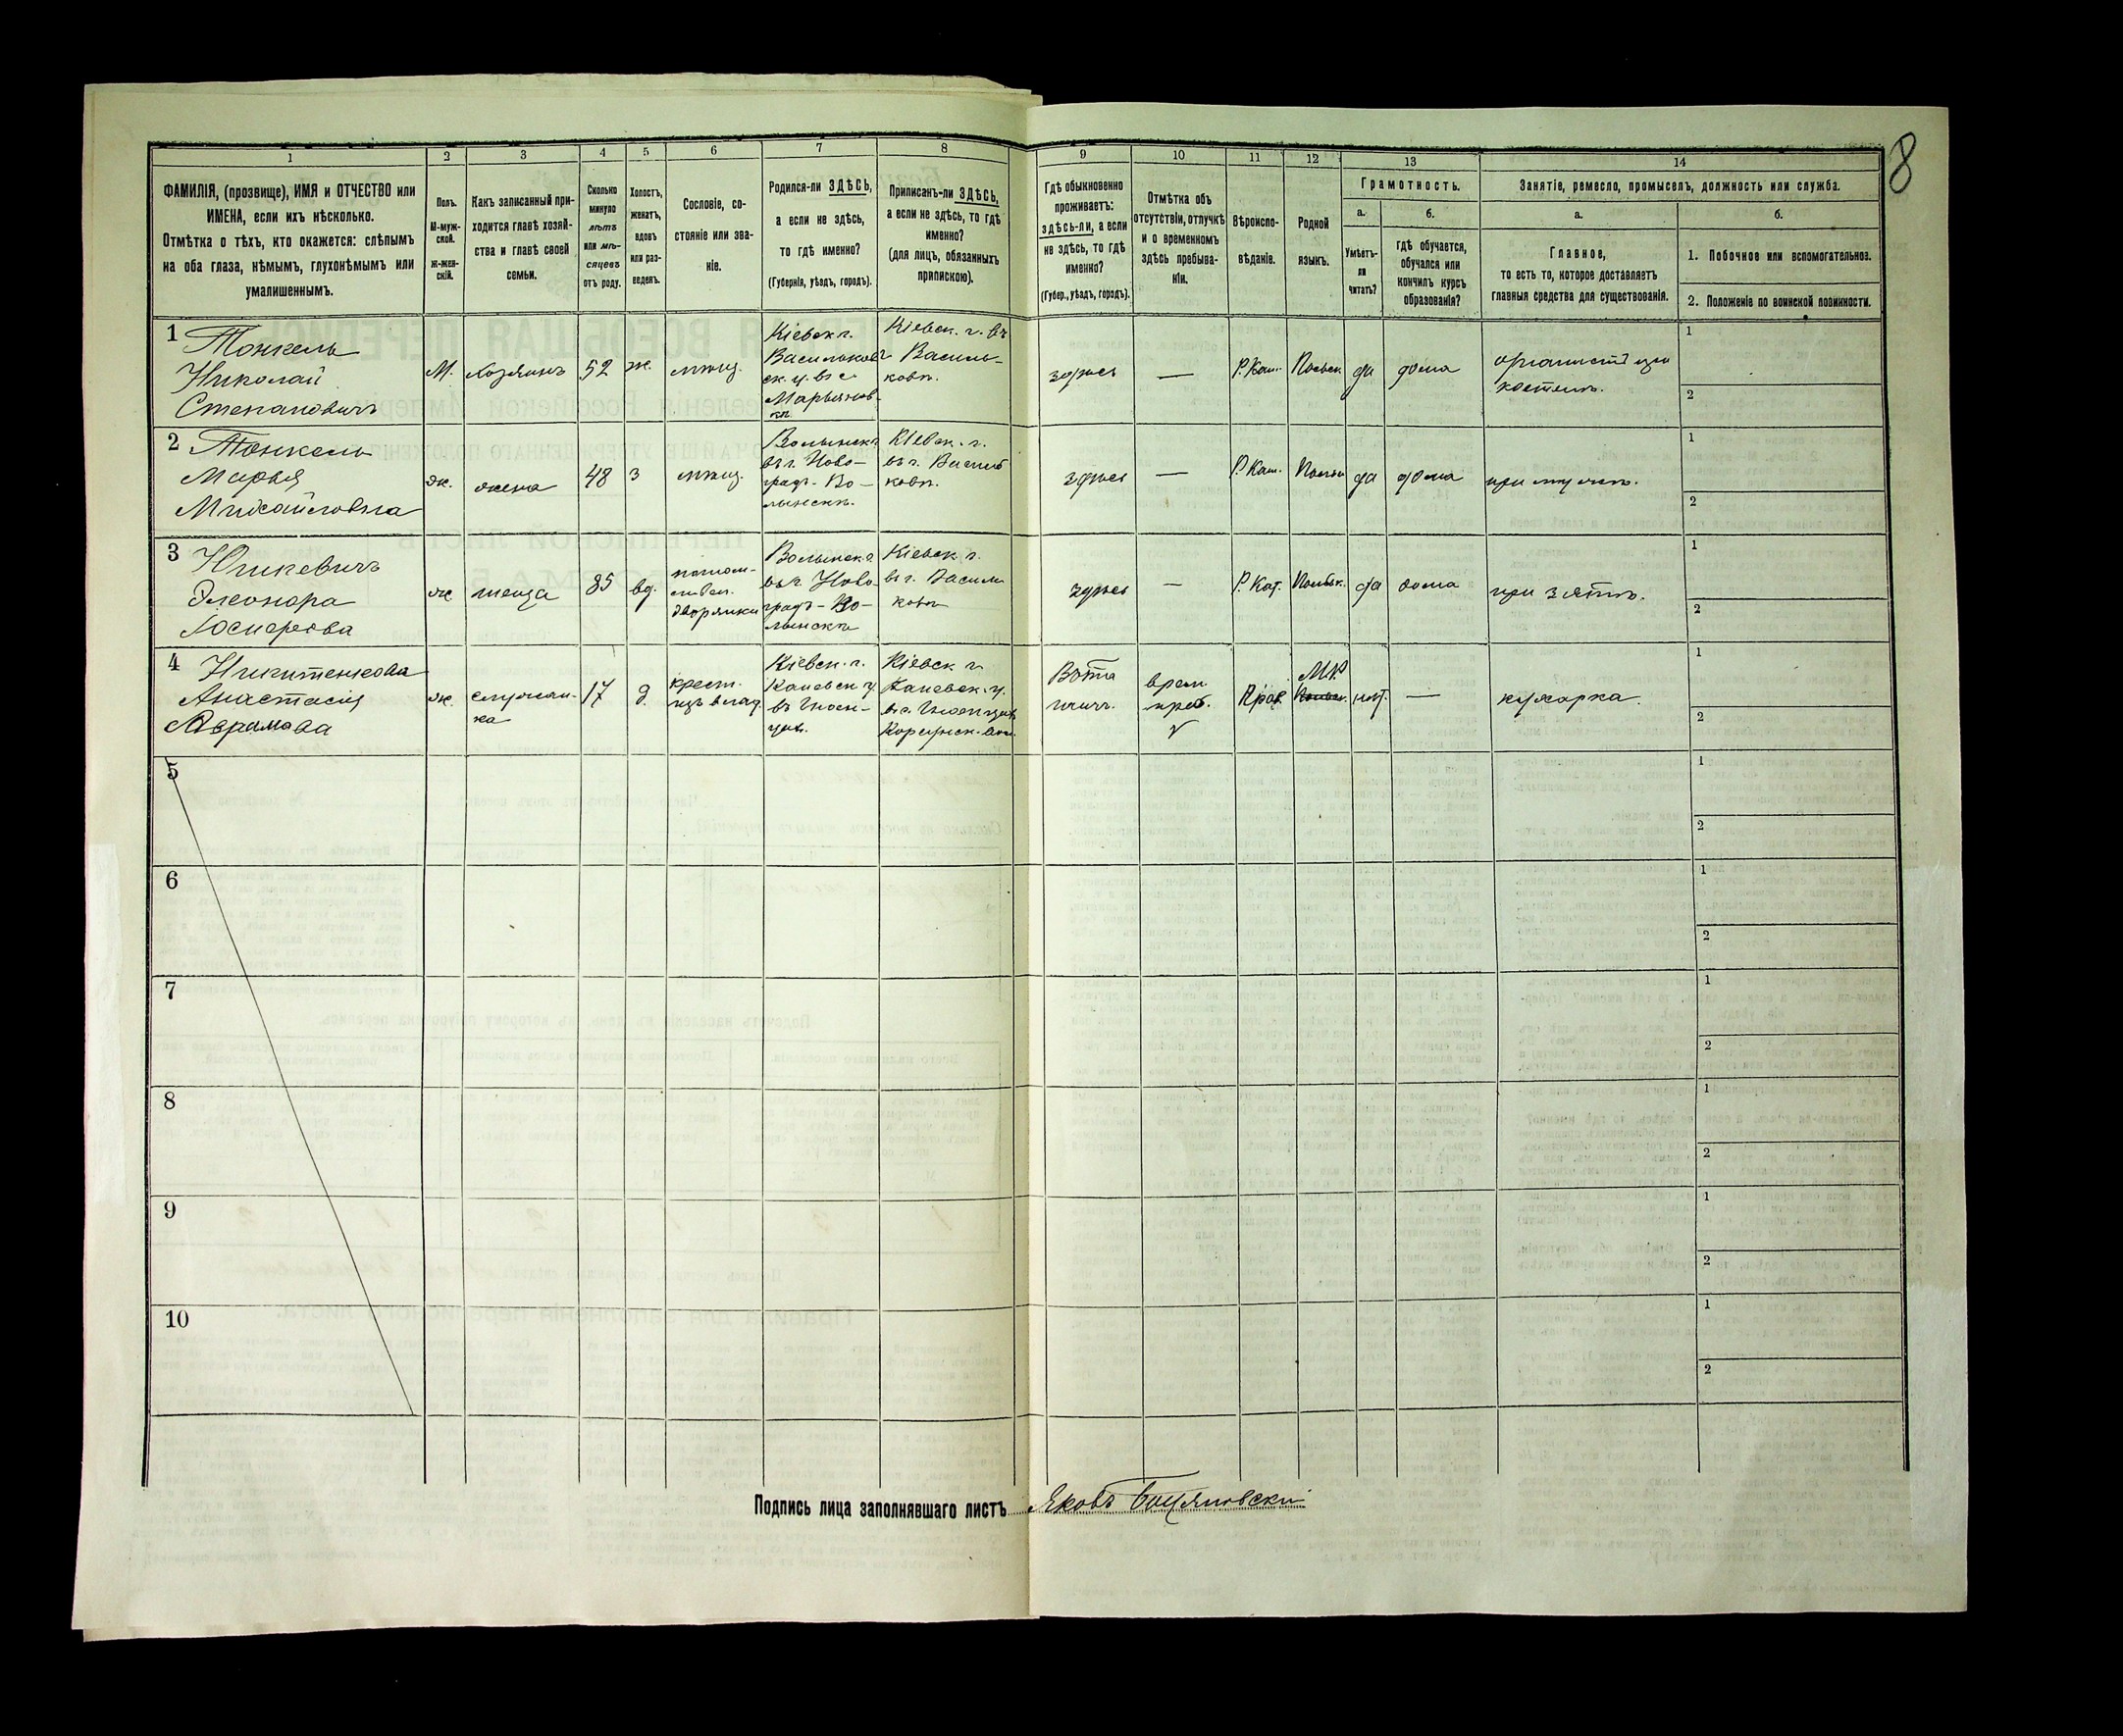 8
1
2
3
4
5
6
7
8
9
10
11
12
13
14
ФАМИЛІЯ, (прозвище), ИМЯ и ОТЧЕСТВО или
ИМЕНА, если ихъ нѣсколько.
Отмѣтка о тѣхъ, кто окажется: слѣпымъ
на оба глаза, нѣмымъ, глухонѣмымъ или
умалишеннымъ.
Полъ.
М-муж-
ской.
Ж-жен-
скій.
Какъ записанный при-
ходится главѣ хозяй-
ства и главѣ своей
семьи.
Сколько
минуло
лѣтъ
или мѣ-
сяцевъ
отъ роду.
Холостъ,
женатъ,
вдовъ
или раз-
веденъ.
Сословіе, со-
стояніе или зва-
ніе.
Родился-ли ЗДѢСЬ,
а если не здѣсь,
то гдѣ именно?
(Губернія, уѣздъ, городъ).
Приписанъ-ли ЗДѢСЬ,
а если не здѣсь, то гдѣ
именно?
(для лицъ, обязанныхъ
припискою).
Гдѣ обыкновенно
проживаетъ:
здѣсь-ли, а если
не здѣсь, то гдѣ
именно?
(Губер., уѣздъ, городъ).
Отмѣтка объ
отсутствіи, отлучкѣ
и о временномъ
здѣсь пребыва-
ніи.
Вѣроиспо-
вѣданіе.
Родной
языкъ.
Грамотность.
а.
Умѣетъ-
ли
читать?
б.
гдѣ обучается,
обучался или
кончилъ курсъ
образованія?
Занятіе, ремесло, промыселъ, должность или служба.
а.
Главное,
то есть то, которое доставляетъ
главныя средства для существованія.
б.
1. Побочное или вспомогательное.
2. Положеніе по воинской повинности.
1
Тонкель
Николай
Степановичъ
М.
хозяинъ
52
ж.
мѣщ.
Кіевск г.
Васильков
ск. у. въ с.
Марьянов-
кѣ
Кіевск. г. въ
г. Василь-
ковѣ.
здѣсь
—
Р. Кат.
Польск.
да
дома
органистъ при
костелѣ.
1
2
2
Тонкель
Марья
Михайловна
ж.
жена
48
з
мѣщ.
Волынск г
въ г. Ново-
градъ-Во-
лынскѣ.
Кіевск. г.
въ г. Василь
ковѣ.
здѣсь
—
Р. Кат.
да
дома
при мужѣ.
1
2
3
Элеонора
ж
теща
85
вд.
потом-
ствен.
дворянки
Волынск г.
въ г. Ново-
градъ-Во-
лынскѣ
Кіевск. г.
въ г. Василь
ковѣ
здѣсь
—
Р. Кат.
Польск.
да
дома
при зятѣ.
1
2
4
Никитенкова
Анастасія
Аврамова
ж.
служан-
ка
17
д.
крест.
изъ влад.
Кіевск. г.
Каневск у.
Кіевск г
Каневск. у.
врем
преб.
Прав.
М.Р
нѣт.
—
кухарка.
1
2
5
1
2
6
1
2
7
1
2
8
1
2
9
1
2
10
1
2
Подпись лица заполнявшаго листъ
Яковъ